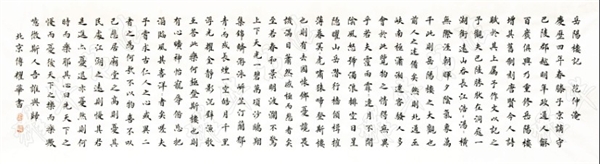 岳陽樓記 范仲淹
慶曆四年春滕子京謫守
巴陵郡越明年政通人和
百廢具興乃重修岳陽樓
增其舊制刻唐賢今人詩
賦於其上屬予作文以記之
予觀夫巴陵勝狀在洞庭一
湖銜遠山吞長江浩浩湯湯橫
無際涯朝暉夕陰氣象萬
千此則岳陽樓之大觀也
前人之述備矣然則北通巫
峽南極瀟湘遷客騷人多
會於此覽物之情得無異
乎若夫霪雨霏霏連月不開
陰風怒號濁浪排空日星
隱曜山岳潛形檣傾楫摧
薄暮冥冥虎嘯猿啼登斯樓
也則有去國懷鄉憂讒畏
譏滿目蕭然感極而悲者矣
至若春和景明波瀾不驚
上下天光一碧萬頃沙鷗翔
集錦鱗游泳岸芷汀蘭郁郁
青青而或長煙一空皓月千里
浮光躍金靜影沉璧漁歌
互答此樂何極登斯樓也則
有心曠神怡寵辱偕忘把酒
臨風其喜洋洋者矣嗟夫
予嘗求古仁人之心或異二
者之為何哉不以物喜不以
己悲居廟堂之高則憂其
民處江湖之遠則憂其君
是進亦憂退亦憂然則何
時而樂耶其必曰先天下之
憂而憂後天下之樂而樂乎
噫微斯人吾誰與歸
北京傅耀華書